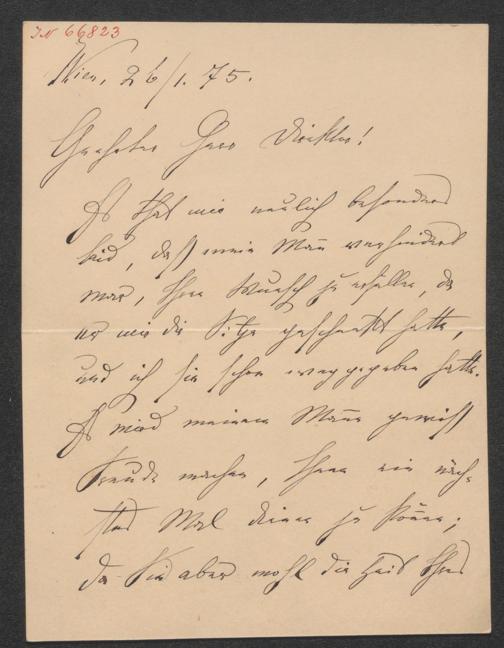 IN 66823
Wien, 26/1. 75.
Geehrter Herr Direktor!
Es that mir neulich besonders
leid, daß mein Mañ verhindert
war, Ihren Wunsch zu erfüllen, da
er mir die Sitze geschenkt hatte,
und ich sie schon weggegeben hatte.
Es wird meinem Mañ gewiß
Freude machen, Ihnen ein näch-
stes Mal dienen zu köñen;
da Sie aber wohl die Zeit Ihres